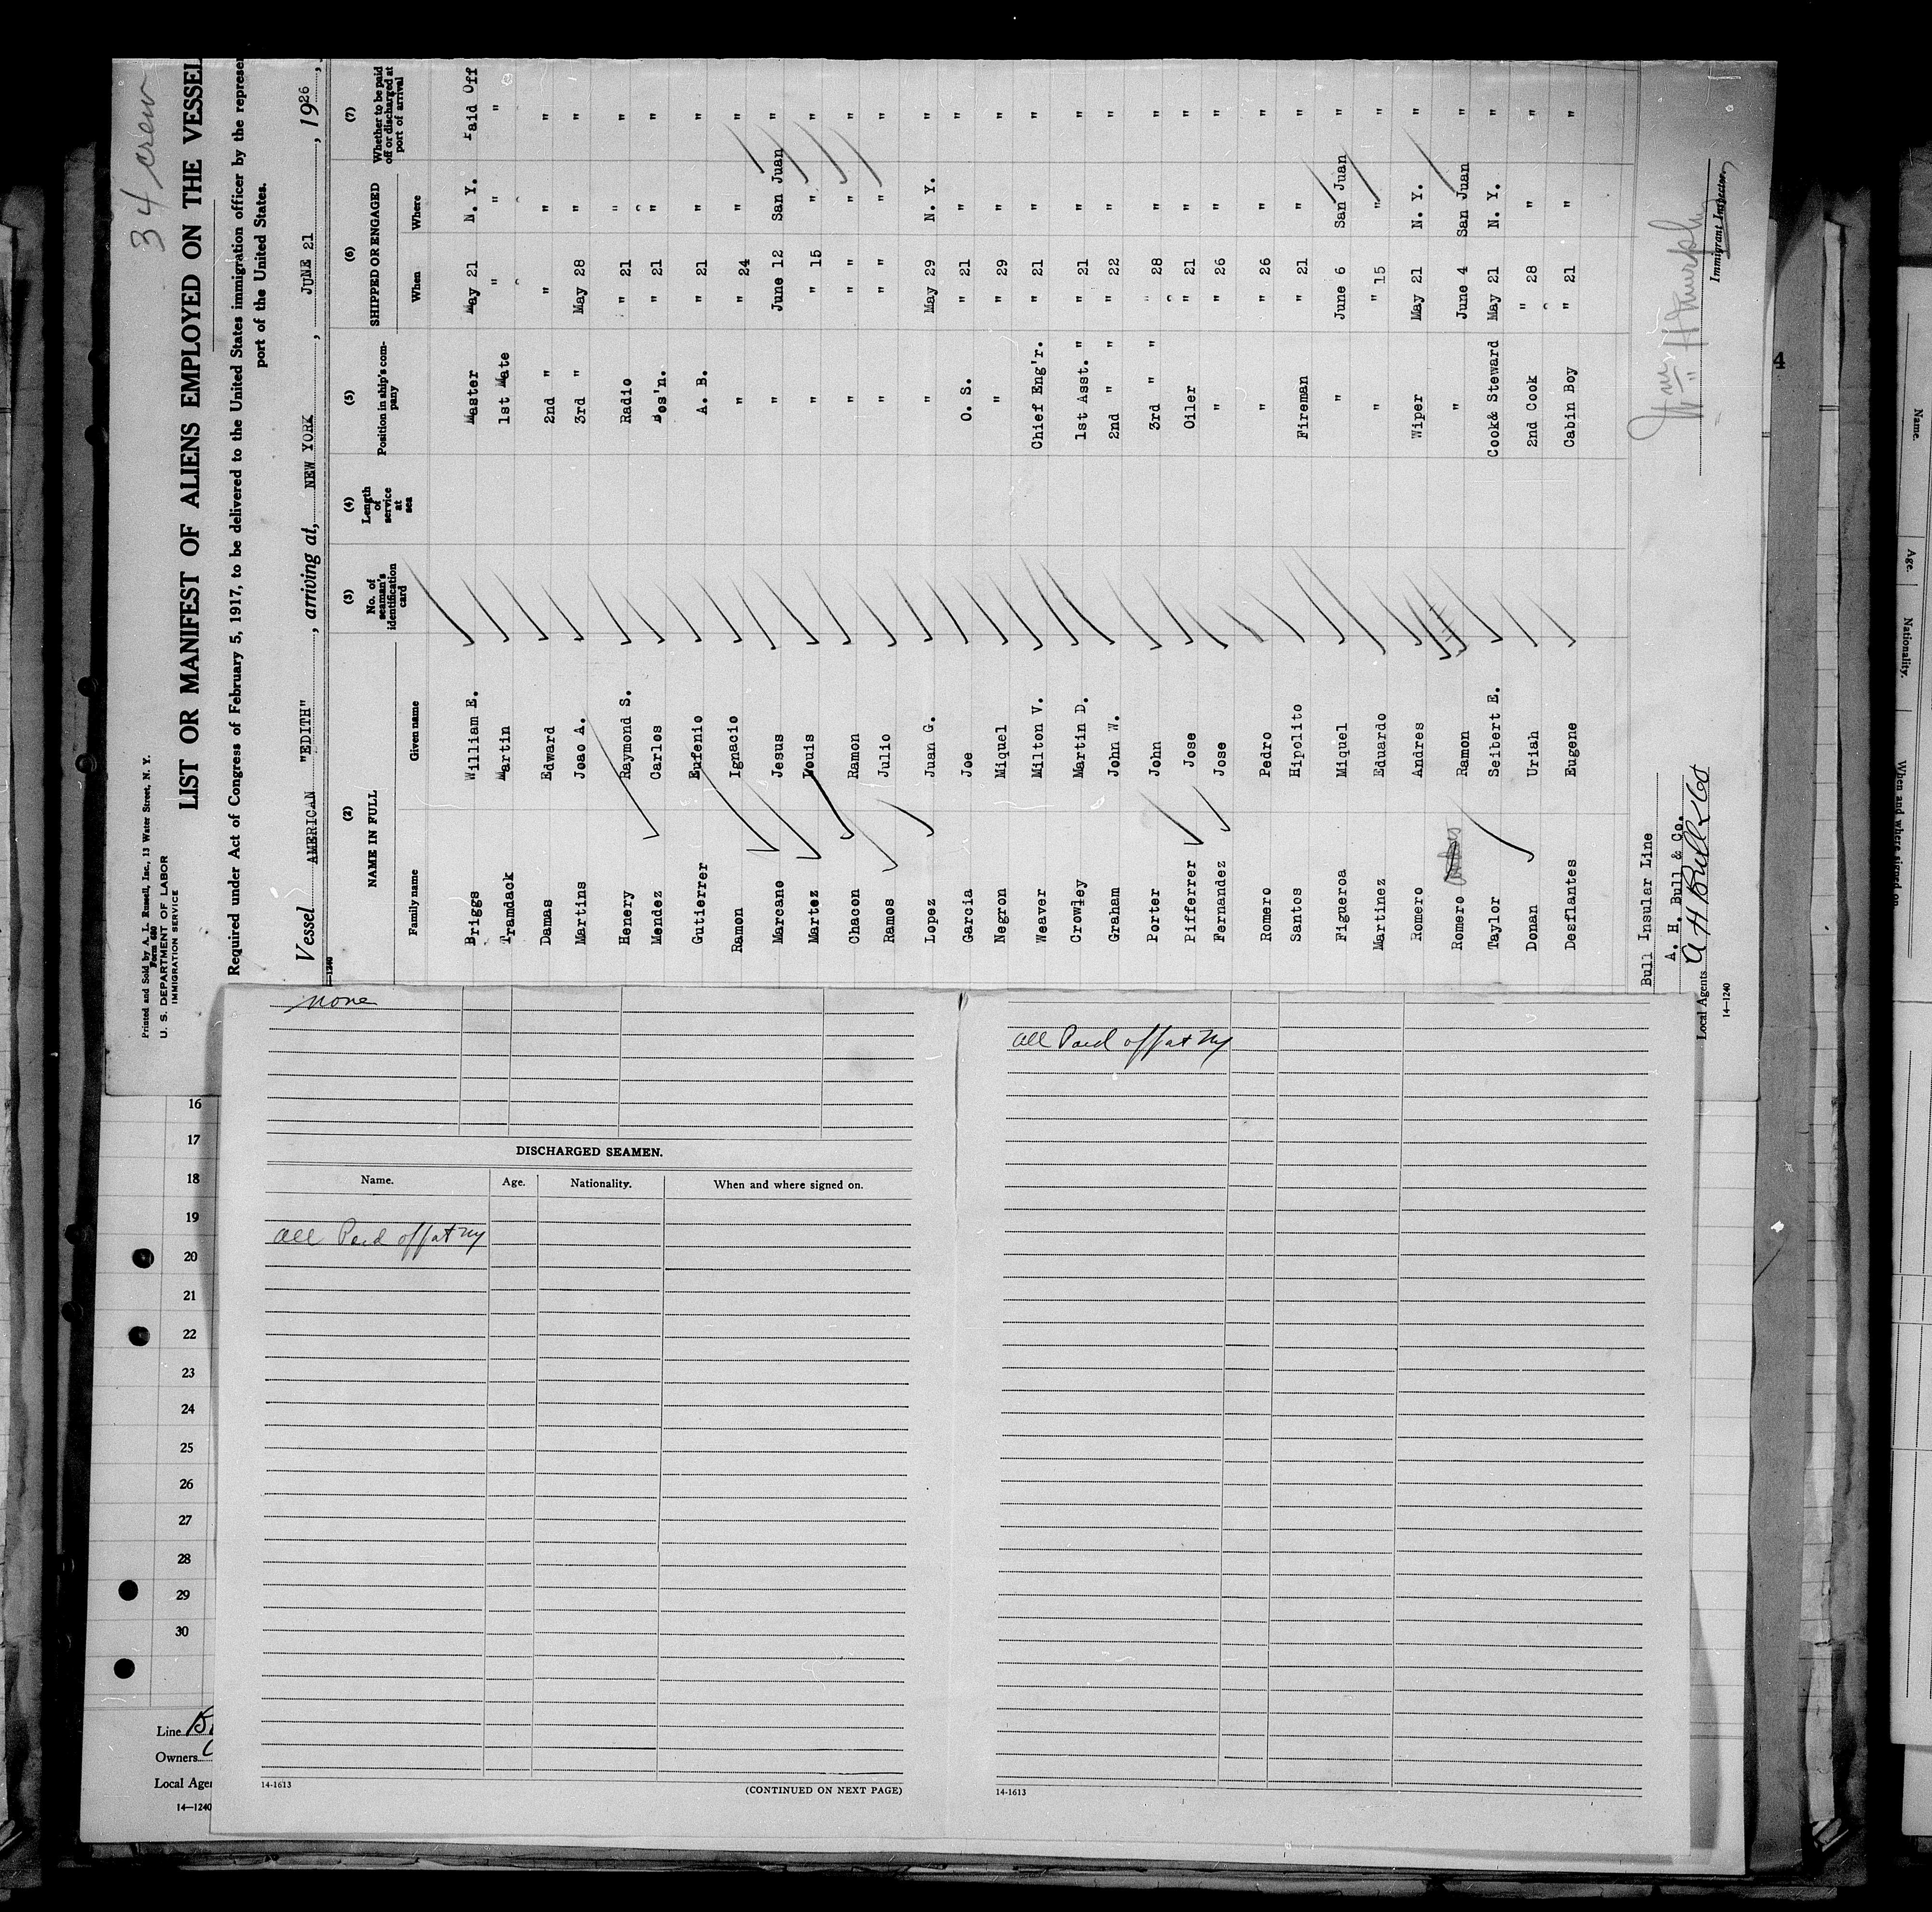 34 crew
Printed and Sold by A. L. Russell, Inc., 13 Water Street, N. Y.
Form 680
U. S. DEPARTMENT OF LABOR
IMMIGRATION SERVICE
LIST OR MANIFEST OF ALIENS EMPLOYED ON THE VESSEL
Required under Act of Congress of February 5, 1917, to be delivered to the United States immigration officer by the represen
port of the United States.
Vessel AMERICAN "EDITH", arriving at, NEW YORK, JUNE 21, 1926,
14-1240
(2) (3) (4) (5) (6) (7)
NAME IN FULL No. of seaman's identification card Length of service at sea Position in ship's company SHIPPED OR ENGAGED Whether to be paid off or discharged at port of arrival
Family name Given name When Where
Briggs William E. Master May 21 N. Y. Paid Off
Tramdack Martin 1st Mate " " "
Damas Edward 2nd " " " "
Martins Joao A. 3rd " May 28 " "
Henery Raymond S. Radio " 21 " "
Mendez Carlos Bos'n. " 21 " "
Gutierrer Eufenio A. B. " 21 " "
Ramon Ignacio " " 24 " "
Marcano Jesus " June 12 San Juan "
Martez Louis " " 15 " "
Chacon Ramon " " " "
Ramos Julio " " " "
Lopez Juan G. " May 29 N. Y. "
Garcia Joe O. S. " 21 " "
Negron Miquel " " 29 " "
Weaver Milton V. Chief Eng'r. " 21 " "
Crowley Martin D. 1st Asst. " " 21 " "
Graham John W. 2nd " " " 22 " "
Porter John 3rd " " " 28 " "
Pifferrer Jose Oiler " 21 " "
Fernandez Jose " " 26 " "
Romero Pedro " " 26 " "
Santos Hipolito Fireman " 21 " "
Figueroa Miquel " June 6 San Juan "
Martinez Eduardo " " 15 " "
Romero Andres Wiper May 21 N. Y. "
Romero Ramon " June 4 San Juan "
Taylor Seibert E. Cook& Steward May 21 N. Y. "
Donan Uriah 2nd Cook " 28 " "
Desflantes Eugene Cabin Boy " 21 " "
Bull Insular Line
A. H. Bull & Co.
Local Agents A H Bull & Co
14-1240
Immigrant Inspector.
4
none
DISCHARGED SEAMEN.
Name. Age. Nationality. When and where signed on.
all Paid off at NY
14-1613
(CONTINUED ON NEXT PAGE)
all Paid off at NY
14-1613
16
17
18
19
20
21
22
23
24
25
26
27
28
29
30
Line
Owners
Local Agen
14-1240
Name. Age. Nationality. When and where signed on